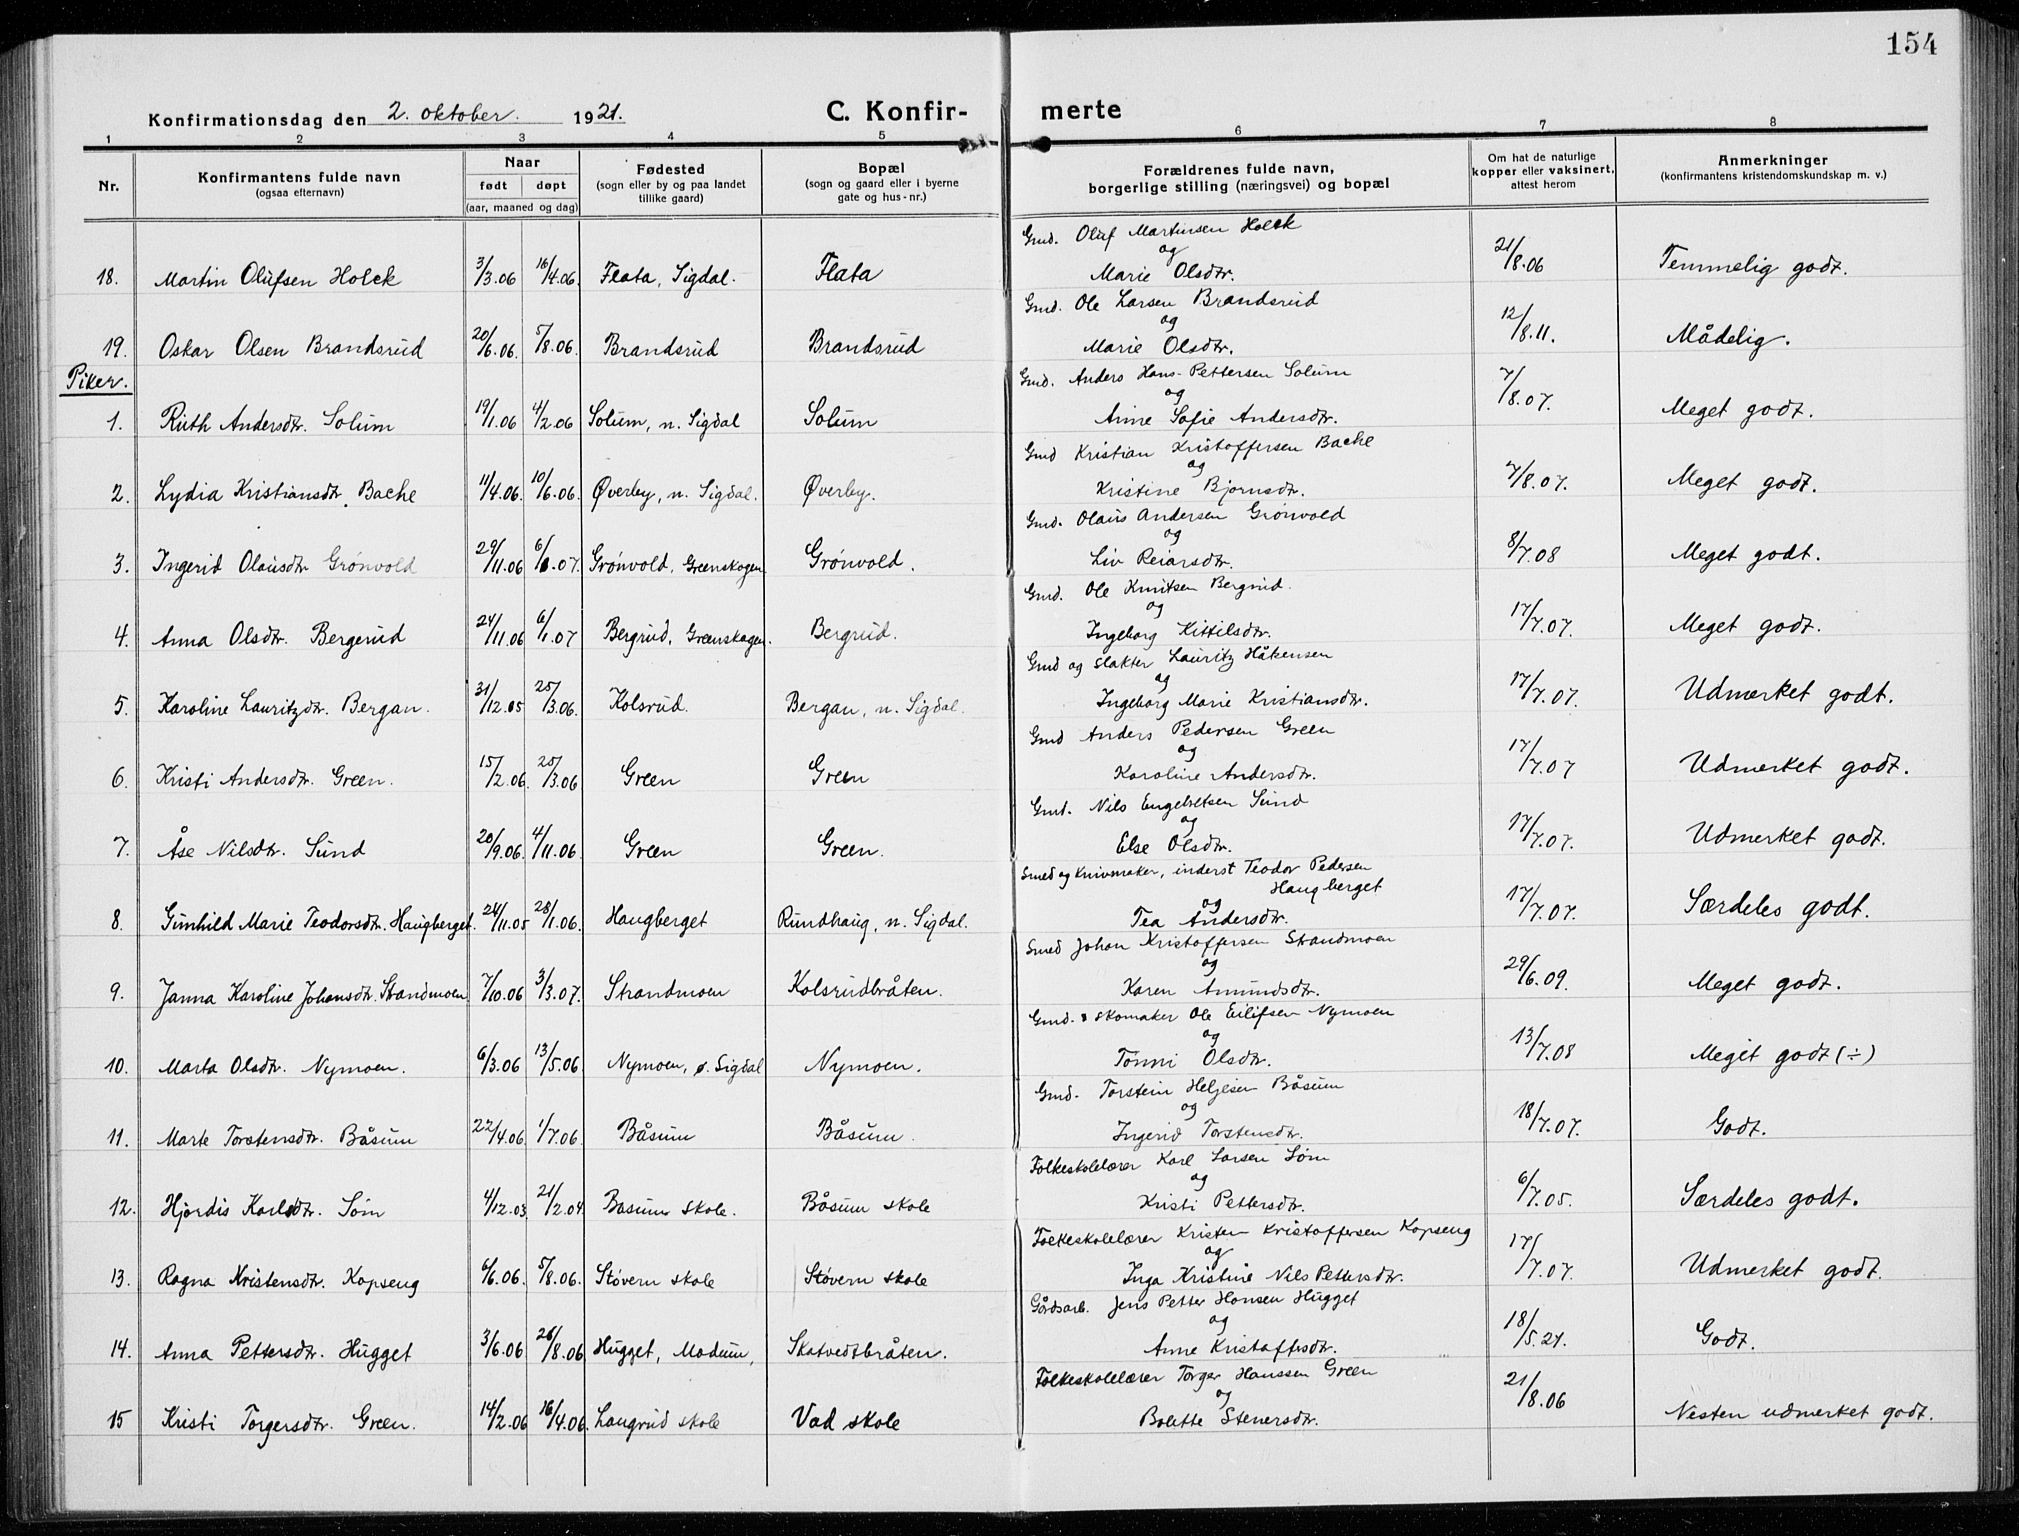 154
Konfirmationsdag den 2. oktober. 1921. C. Konfir- merte
1 2 3 4 5 6 7 8
Nr. Konfirmantens fulde navn (ogsaa efternavn) Naar født døpt (aar, maaned og dag) Fødested (sogn eller by og paa landet tillike gaard) Bopæl (sogn og gaard eller i byerne gate og hus-nr.) Forældrenes fulde navn, borgerlige stilling (næringsvei) og bopæl Om hat de naturlige kopper eller vaksinert, attest herom Anmerkninger (konfirmantens kristendomskundskap m. v.)
Gmd. Oluf Martinsen Holck
og
18. Martin Olufsen Holck 3/3.06 16/4.06. Flata, Sigdal. Flata Marie Olsdtr. 21/8.06 Temmelig godt.
Gmd. Ole Larsen Brandsrud
og
19. Oskar Olsen Brandsrud 20/6.06. 5/8.06. Brandsrud Brandsrud Marie Olsdtr. 12/8.11. Mådelig.
Piker.
Gmd. Anders Hans-Pettersen Solum
og
1. Ruth Andersdtr. Solum 19/1.06 4/2.06 Solum, n. Sigdal Solum Anne Sofie Andersdtr. 7/8.07. Meget godt.
Gmd Kristian Kristoffersen Bache
og
2. Lydia Kristiansdtr. Bache 11/4.06. 10/6.06. Øverby, n. Sigdal. Øverby. Kristine Bjørnsdtr. 7/8.07. Meget godt.
Gmd. Olaus Andersen Grønvold
og
3. Ingerid Olausdtr Grønvold 29/11.06 6/1.07. Grønvold, Greenskogen Grønvold. Liv Reiarsdtr. 8/7.08 Meget godt.
Gmd. Ole Knutsen Bergrud.
og
4. Anna Olsdtr. Bergerud 24/11.06 6/1.07 Bergrud, Greenskogen. Bergrud. Ingeborg Kittilsdtr. 17/7.07. Meget godt.
Gmd og slakter Lauritz Håkensen
og
5. Karoline Lauritzdtr. Bergan. 31/12.05 25/3.06. Kolsrud. Bergan, n. Sigdal. Ingeborg Marie Kristiansdtr. 17/7.07. Udmerket godt.
Gmd Anders Pedersen Green
og
6. Kristi Andersdtr. Green. 15/2.06. 25/3.06 Green Green Karoline Andersdtr. 17/7.07 Udmerket godt.
Gmd. Nils Engebretsen Sund
og
7. Åse Nilsdtr. Sund 20/9.06. 4/11.06. Green Green. Else Olsdtr. 17/7.07. Udmerket godt.
Smed og Knivmaker, inderst Teodor Pedersen
Haugberget
og
8. Gunhild Marie Teodorsdtr. Haugberget. 24/11.05 28/1.06. Haugberget Rundhaug, n. Sigdal. Tea Andersdtr. 17/7.07. Særdeles godt.
Smed Johan Kristoffersen Strandmoen
og
9. Janna Karoline Johansdtr. Strandmoen 7/10.06 3/3.07. Strandmoen Kolsrudbråten. Karen Amundsdtr. 29/6.09. Meget godt.
Gmd. & skomaker Ole Eilifsen Nymoen
og
10. Marta Olsdtr. Nymoen. 6/3.06 13/5.06 Nymoen, ø. Sigdal Nymoen. Tonni Olsdtr. 13/7.08 Meget godt (÷)
Gmd. Torstein Helgesen Båsum
og
11. Marte Torstensdtr. Båsum 22/4.06. 1/7.06. Båsum Båsum. Ingerid Torstensdtr. 18/7.07. Godt.
Folkeskolelærer Karl Larsen Søm
og
12. Hjørdis Karlsdtr. Søm 4/12.03 21/2.04 Basum skole. Båsum skole Kristi Pettersdtr. 6/7.05. Særdeles godt.
Folkeskolelærer Kristen Kristoffersen Kopseng
og
13. Ragna Kristensdtr. Kopseng 6/6.06. 5/8.06. Støvern skole Støvern skole Inga Kristine Nils Pettersdtr. 17/7.07. Udmerket godt.
Gårdsarb. Jens Petter Hansen Hugget
og
14. Anna Pettersdtr. Hugget 3/6.06 26/8.06 Hugget, Modum, Skatvedtbråten. Anne Kristoffersdtr. 18/5.21. Godt.
Folkeskolelærer Torger Hanssen Green
og
15 Kristi Torgersdtr. Green. 14/2.06 16/4.06. Laugrud skole Vad skole Bolette Stenersdtr. 21/8.06 Nesten udmerket godt.